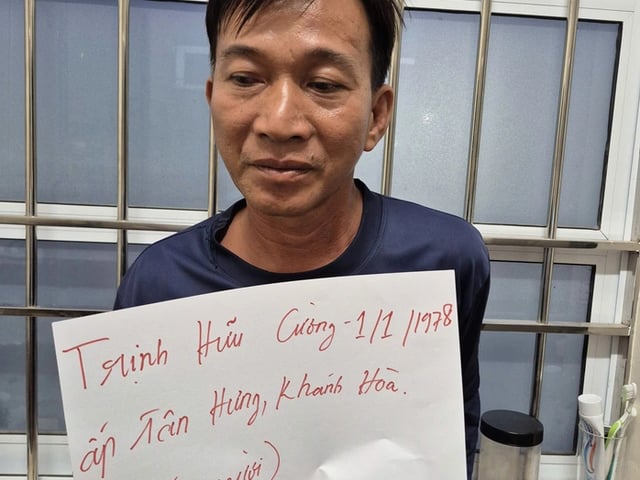 Trịnh Hữu Cường - 1/1/1978
ấp Tân Hưng, Khánh Hoà.